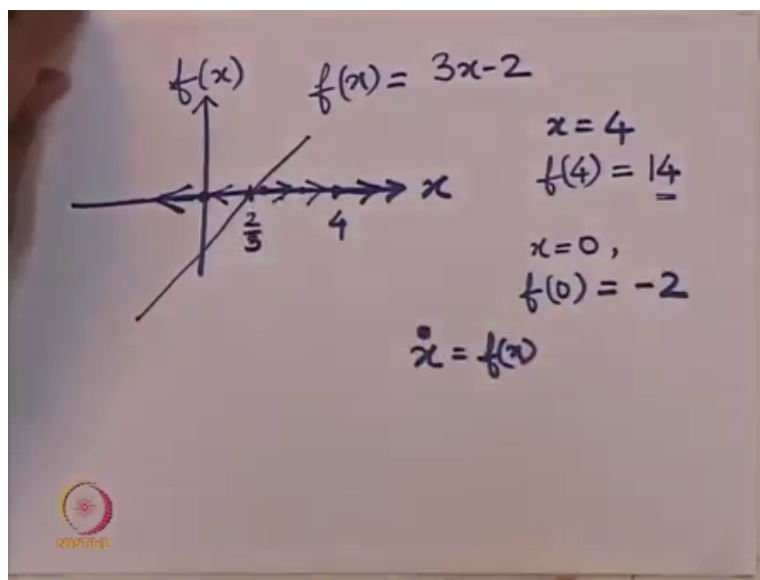 f(x)
f(x) = 3x-2
x = 4
f(4) = 14
x
2/3
4
x=0,
f(0) = -2
ẋ = f(x)
NPTEL